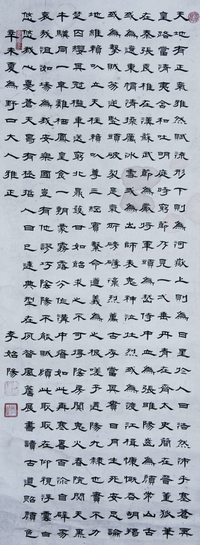 天地有正氣雜然賦流形下則為河嶽上則為日星於人曰浩然沛乎塞蒼冥
皇路當清夷含和吐明庭時窮節乃見一一垂丹青在齊太史簡在晉董狐筆
在秦張良椎在漢蘇武節為嚴將軍頭為嵇侍中血為張睢陽齒為顏常山舌
或為遼東帽清操厲冰雪或為出師表鬼神泣壯烈或為渡江楫慷慨吞胡羯
或為擊賊笏逆豎頭破裂是氣所磅礴凜烈萬古存當其貫日月生死安足論
地維賴以立天柱賴以尊三綱實繫命道義為之根嗟予遘陽九隸也實不力
楚囚纓其冠傳車送窮北鼎鑊甘如飴求之不可得陰房闃鬼火春院閟天黑
牛驥同一皁雞棲鳳凰食一朝蒙霧露分作溝中瘠如此再寒暑百沴自辟易
哀哉沮洳場為我安樂國豈有他繆巧陰陽不能賊顧此耿耿在仰視浮雲白
悠悠我心憂蒼天曷有極哲人日已遠典型在夙昔風簷展書讀古道照顏色
辛未夏為野口大人雅正 李始陽